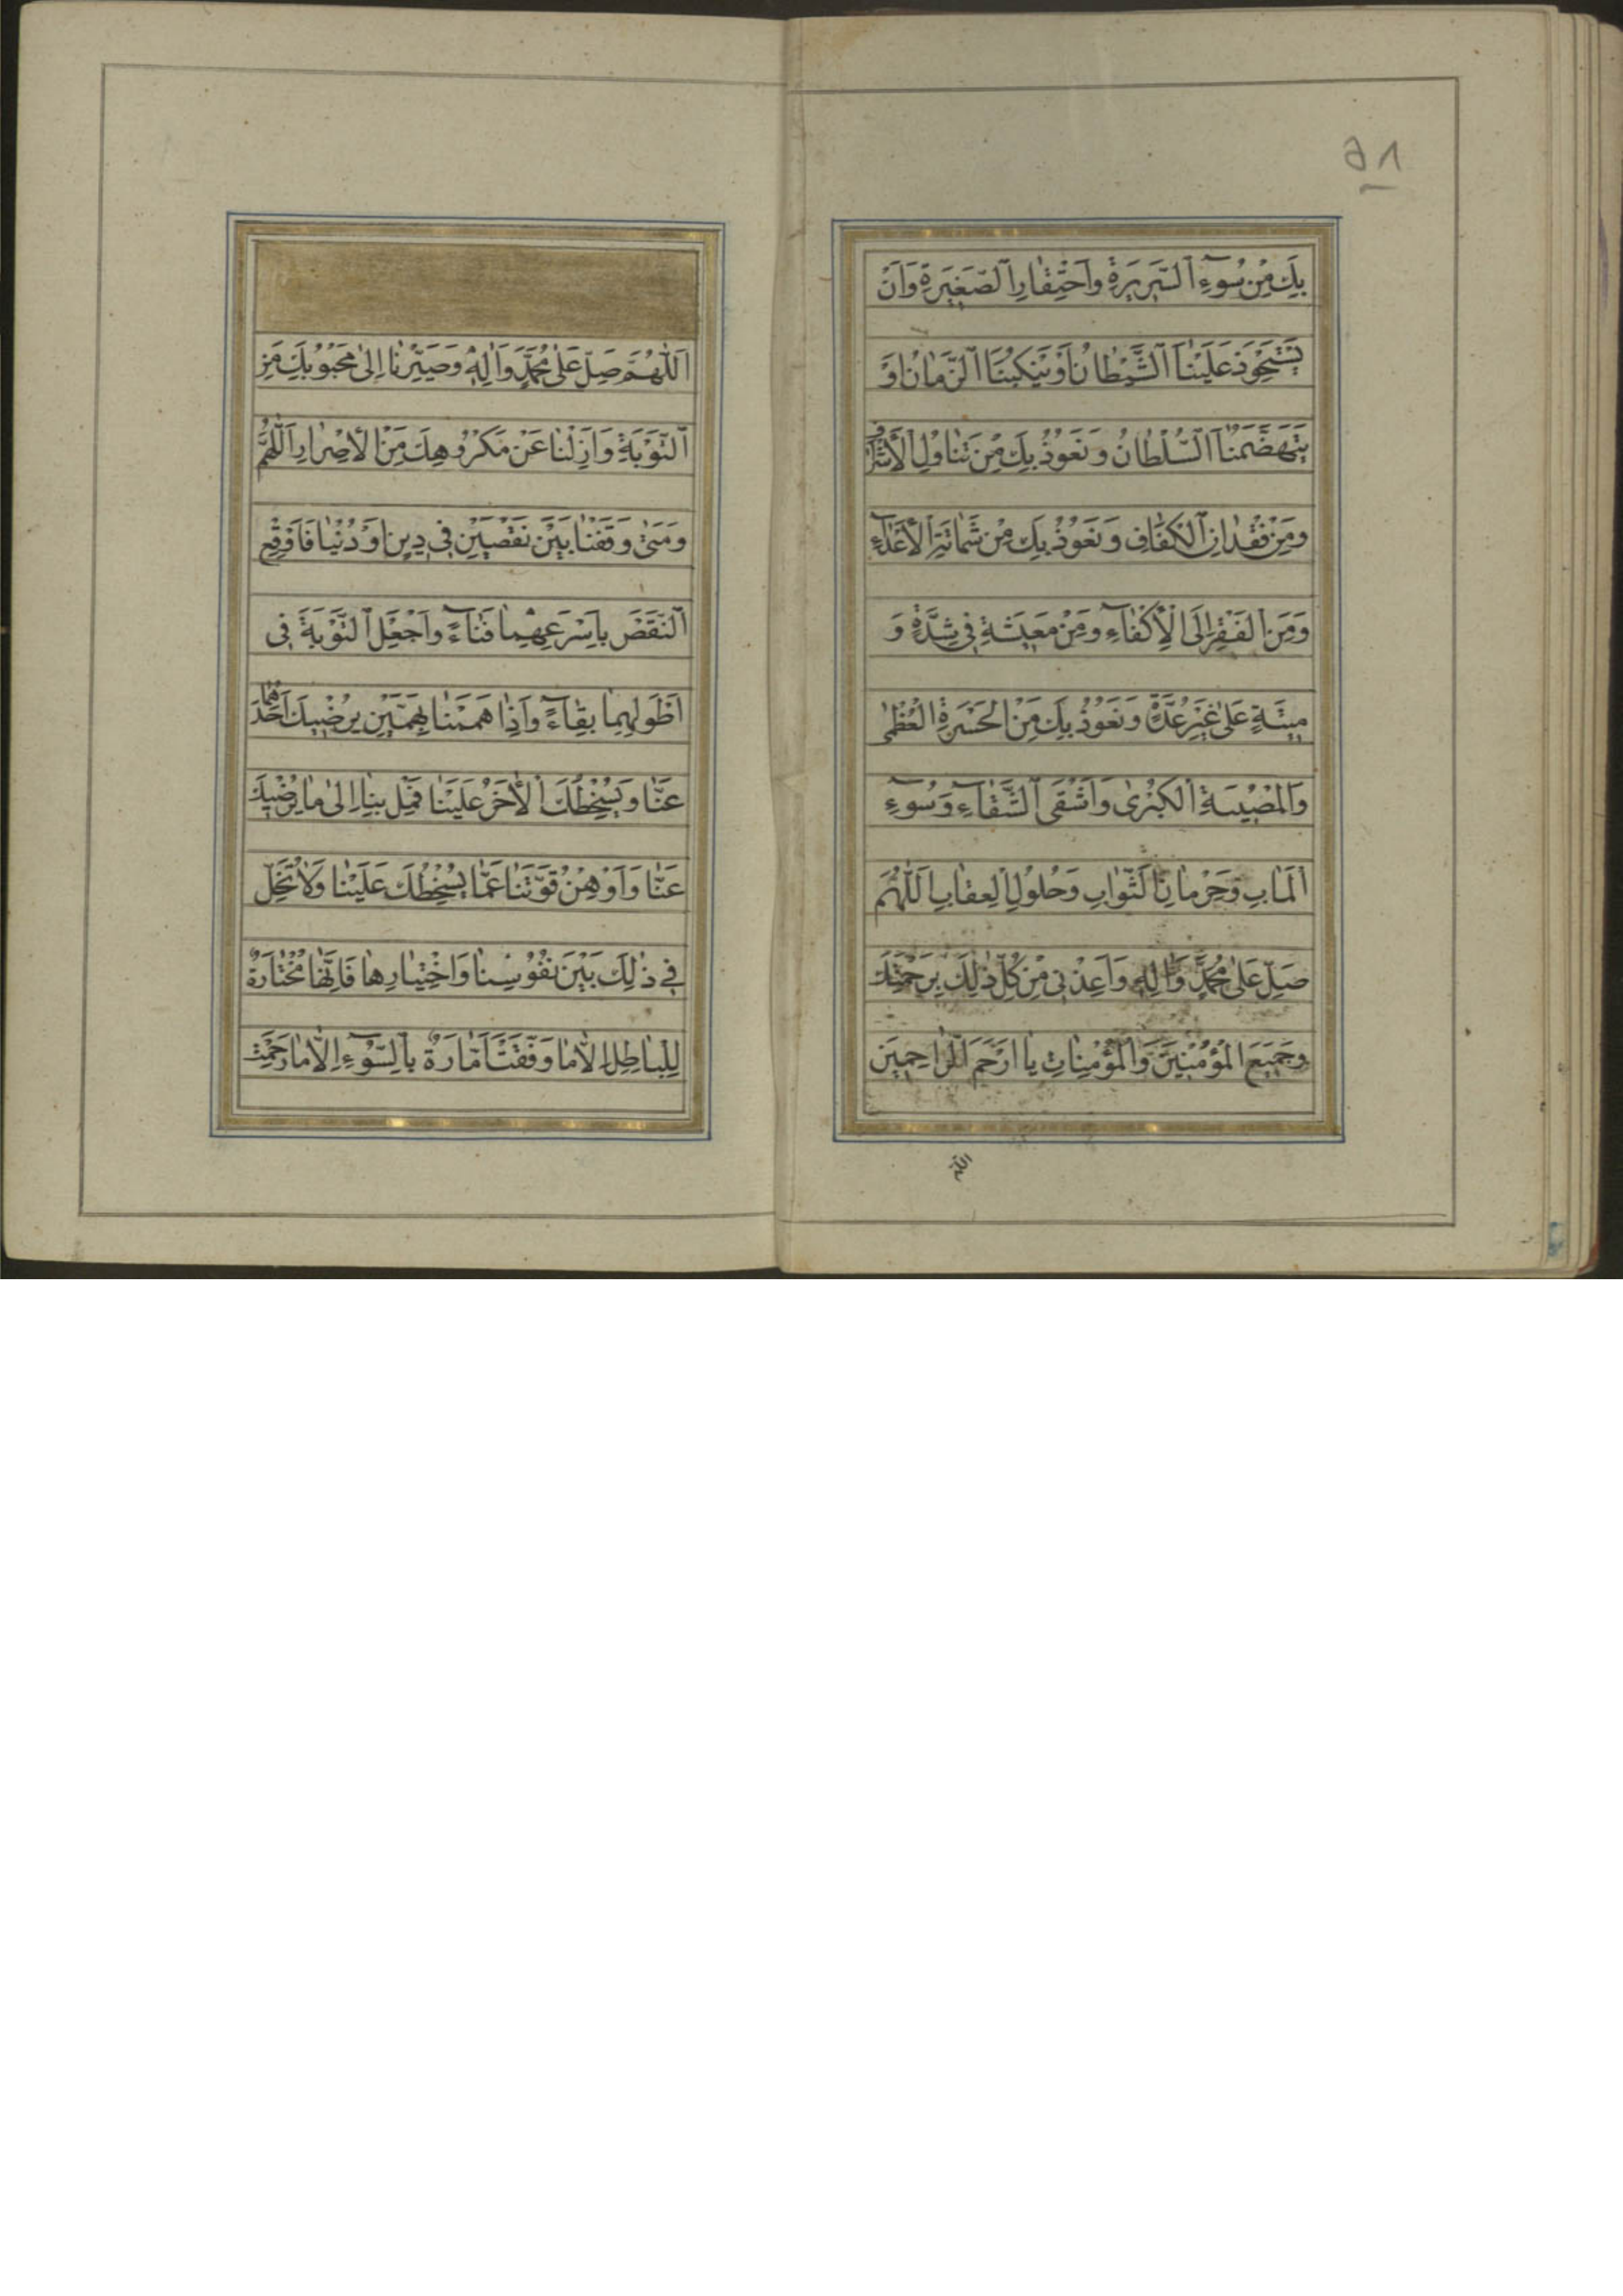 ٥٨
بِكَ مِنْ سُوءِ السَّرِيرَةِ وَاحْتِقَارِ الصَّغِيرَةِ وَاَنْ
يَسْتَحْوِذَ عَلَيْنَا الشَّيْطَانُ اَوْ يَنْكُبَنَا الزَّمَانُ اَوْ
يَتَهَضَّمَنَا السُّلْطَانُ وَنَعُوذُ بِكَ مِنْ تَنَاوُلِ الْاِسْرَافِ
وَمِنْ فِقْدَانِ الْكَفَافِ وَنَعُوذُ بِكَ مِنْ شَمَاتَةِ الْاَعْدَاءِ
وَمِنَ الْفَقْرِ اِلَى الْاَكْفَاءِ وَمِنْ مَعِيشَةٍ فِي شِدَّةٍ وَ
مِيتَةٍ عَلَى غَيْرِ عُدَّةٍ وَنَعُوذُ بِكَ مِنَ الْحَسْرَةِ الْعُظْمٰى
وَالْمُصِيبَةِ الْكُبْرٰى وَاَشْقَى الشَّقَاءِ وَسُوءِ
الْمَاٰبِ وَحِرْمَانِ الثَّوَابِ وَحُلُولِ الْعِقَابِ اَللّٰهُمَّ
صَلِّ عَلٰى مُحَمَّدٍ وَاٰلِهِ وَاَعِذْنِي مِنْ كُلِّ ذٰلِكَ بِرَحْمَتِكَ
وَجَمِيعَ الْمُؤْمِنِينَ وَالْمُؤْمِنَاتِ يَا اَرْحَمَ الرَّاحِمِينَ
اللّٰهمّ
اَللّٰهُمَّ صَلِّ عَلٰى مُحَمَّدٍ وَاٰلِهِ وَصَيِّرْنَا اِلٰى مَحْبُوبِكَ مِنَ
التَّوْبَةِ وَاَزِلْنَا عَنْ مَكْرُوهِكَ مِنَ الْاِصْرَارِ اَللّٰهُمَّ
وَمَتٰى وَقَفْنَا بَيْنَ نَقْصَيْنِ فِي دِينٍ اَوْ دُنْيَا فَاَوْقِعِ
النَّقْصَ بِاَسْرَعِهِمَا فَنَاءً وَاجْعَلِ التَّوْبَةَ فِي
اَطْوَلِهِمَا بَقَاءً وَاِذَا هَمَمْنَا بِهَمَّيْنِ يُرْضِيكَ اَحَدُهُمَا
عَنَّا وَيُسْخِطُكَ الْاٰخَرُ عَلَيْنَا فَمِلْ بِنَا اِلٰى مَا يُرْضِيكَ
عَنَّا وَاَوْهِنْ قُوَّتَنَا عَمَّا يُسْخِطُكَ عَلَيْنَا وَلَا تُخَلِّ
فِي ذٰلِكَ بَيْنَ نُفُوسِنَا وَاخْتِيَارِهَا فَاِنَّهَا مُخْتَارَةٌ
لِلْبَاطِلِ اِلَّا مَا وَفَّقْتَ اَمَّارَةٌ بِالسُّوءِ اِلَّا مَا رَحِمْتَ